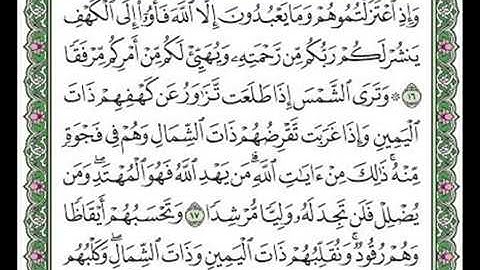 وَإِذِ ٱعْتَزَلْتُمُوهُمْ وَمَا يَعْبُدُونَ إِلَّا ٱللَّهَ فَأْوُۥٓا۟ إِلَى ٱلْكَهْفِ
يَنشُرْ لَكُمْ رَبُّكُم مِّن رَّحْمَتِهِۦ وَيُهَيِّئْ لَكُم مِّنْ أَمْرِكُم مِّرْفَقًا
١٦ ۞ وَتَرَى ٱلشَّمْسَ إِذَا طَلَعَت تَّزَٰوَرُ عَن كَهْفِهِمْ ذَاتَ
ٱلْيَمِينِ وَإِذَا غَرَبَت تَّقْرِضُهُمْ ذَاتَ ٱلشِّمَالِ وَهُمْ فِى فَجْوَةٍ
مِّنْهُ ۚ ذَٰلِكَ مِنْ ءَايَٰتِ ٱللَّهِ ۗ مَن يَهْدِ ٱللَّهُ فَهُوَ ٱلْمُهْتَدِ ۖ وَمَن
يُضْلِلْ فَلَن تَجِدَ لَهُۥ وَلِيًّا مُّرْشِدًا ١٧ وَتَحْسَبُهُمْ أَيْقَاظًا
وَهُمْ رُقُودٌ ۚ وَنُقَلِّبُهُمْ ذَاتَ ٱلْيَمِينِ وَذَاتَ ٱلشِّمَالِ ۖ وَكَلْبُهُم